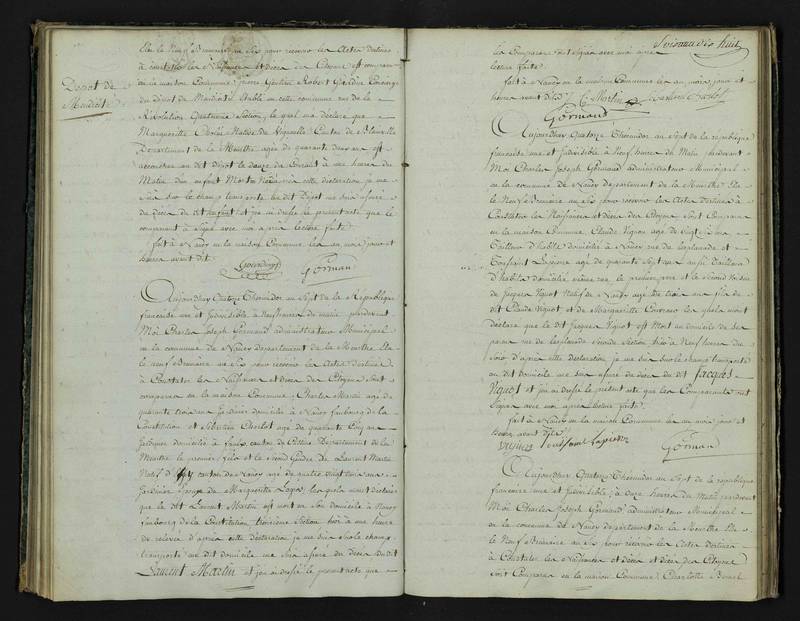 Elu le Neuf Brumaire an Six pour recevoir les Actes destinés
à constater les Naissances et décès des Citoyens est comparu
en la maison Commune, Pierre
du dépôt de Mendicité établi en cette commune rue de la
Révolution quatrième Section, lequel m'a déclaré que
Marguerite Native de Vigneulle Canton de Blainville
Département de la Meurthe agée de quarante deux ans est
accouchée au dit dépôt le douze du Courant à une heure du
Matin d'un enfant Mort né, d'après cette déclaration je me
suis sur le champ transporté au dit Dépôt me suis assuré
du décès du dit Enfant et j'ai dressé le présent acte que le
comparant a Signé avec moi après lecture faite
fait à Nancy en la maison Commune les an mois jour et
heure avant dit
Gormand
Dépôt de
Mendicité
Aujourdhuy Quatorze Thermidor an Sept de la République
française une et Indivisible à Neuf heures du matin pardevant
Moi Charles Joseph Gormand administrateur Municipal
en la commune de Nancy département de la Meurthe Elu
le neuf Brumaire an Six pour recevoir les actes destinés
à Constater les Naissances et décès des Citoyens Sont
comparus en la maison Commune, Charles Martin agé de
quarante trois ans Jardinier domicilié à Nancy faubourg de la
Constitution et Sébastien Charlot agé de quarante Cinq ans
Jardinier domicilié à canton de Département de la
Meurthe le premier fils et le Second Gendre de Laurent Martin
Natif d' canton de Nancy agé de quatre vingt ans
Jardinier Epoux de Marguerite lesquels m'ont déclaré
que le dit Laurent Martin est mort en Son domicile à Nancy
faubourg de la Constitution troisième Section hier à une heure
de relevée d'après cette déclaration je me suis sur le champ
transporté au dit domicile me Suis assuré du décès du dit
Laurent Martin et j'ai dressé le présent acte que
Soixante dix huit
les Comparans ont Signé avec moi après
lecture faite
fait à Nancy en la maison Commune les an mois jour et
heure avant dits C Martin Sebastien Charlot
Gormand
Aujourdhuy Quatorze Thermidor an Sept de la republique
française une et Indivisible à Neuf heures du Matin pardevant
Moi Charles Joseph Gormand administrateur Municipal
en la commune de Nancy département de la Meurthe Elu
le Neuf Brumaire an Six pour recevoir les Actes destinés à
Constater les Naissances et décès des Citoyens Sont Comparus
en la maison Commune, Claude Vignot agé de
Tailleur d'habits domicilié à Nancy rue de l'esplanade et
Toussaint Lapierre agé de quarante Sept ans aussi Tailleur
d'habits domicilié même rue le premier père et le Second Voisin
de Jacques Vignot Natif de Nancy agé de trois ans fils du
dit Claude Vignot et de Marguerite lesquels m'ont
déclaré que le dit Jacques Vignot est Mort au domicile de Ses
parens rue de l'esplanade Seconde Section hier à Neuf heures du
Soir d'après cette déclaration je me suis sur le champ transporté
au dit domicile me Suis assuré du décès du dit Jacques
Vignot et j'ai dressé le présent acte que les Comparans ont
Signé avec moi après lecture faite
fait à Nancy en la maison Commune les an mois jour et
heures avant dits
Toussaint Lapierre
Gormand
Aujourdhuy Quatorze Thermidor an Sept de la republique
française une et Indivisible, à onze heures du Matin pardevant
Moi Charles Joseph Gormand administrateur Municipal
en la commune de Nancy département de la Meurthe Elu
le Neuf Brumaire an Six pour recevoir les Actes destinés
à Constater les Naissances et décès des Citoyens
Sont Comparus en la maison Commune, Charlotte